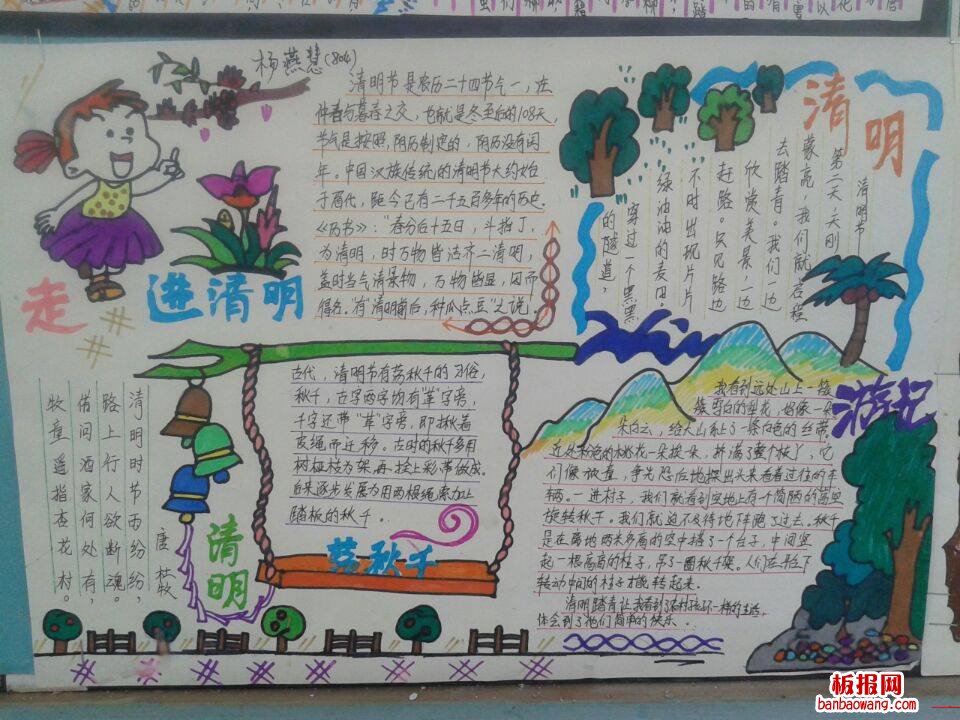 杨燕慧(804)
清明节是农历二十四节气一,在
仲春与暮春之交,也就是冬至后的108天,
节气是按照,阴历制定的,阴历没有闰
年。中国汉族传统的清明节大约始
于周代,距今已有二千五百多年的历史。
《历书》:"春分后十五日,斗指丁,
为清明,时万物皆洁齐二清明,
盖时当气清景物,万物皆显,因而
得名。有"清明前后,种瓜点豆"之说!
走
进清明
清明
清明节
第二天,天刚
蒙亮,我们就启程
去踏青。我们一边
欣赏美景,一边
赶路。只见路边
不时出现片片
绿油油的麦田。
穿过一个黑黑
的隧道,
游记
我看到远处山上一簇
簇雪白的梨花,好像一朵
朵白云,给大山系上了一条白色的丝带。
近处粉色的桃花一朵挨一朵,挤满了整个枝丫,它
们像被盖,争先恐后地探出头来看着过往的车
辆。一进村子,我们就看到空地上有个简陋的高空
旋转秋千。我们就迫不及待地下跑了过去。秋千
是在离地两米多高的空中搭了一个台子,中间竖
起一根高高的柱子,吊了一圈秋千架。人们在平台下
转动中间的柱子才能转起来。
清明踏青让我看到了农村孩子不一样的生活,
体会到了他们简单的快乐。
古代,清明节有荡秋千的习俗,
秋千,古字两字均有"革"字旁,
千字还带"草"字旁,即揪着
皮绳而迁移。古时的秋千多用
树桠枝为架,再拴上彩带做成。
后来逐步发展为用两根绳索加上
踏板的秋千。
荡秋千
清明
唐 杜牧
清明时节雨纷纷,
路上行人欲断魂。
借问酒家何处有,
牧童遥指杏花村。
板报网
banbaowang.com